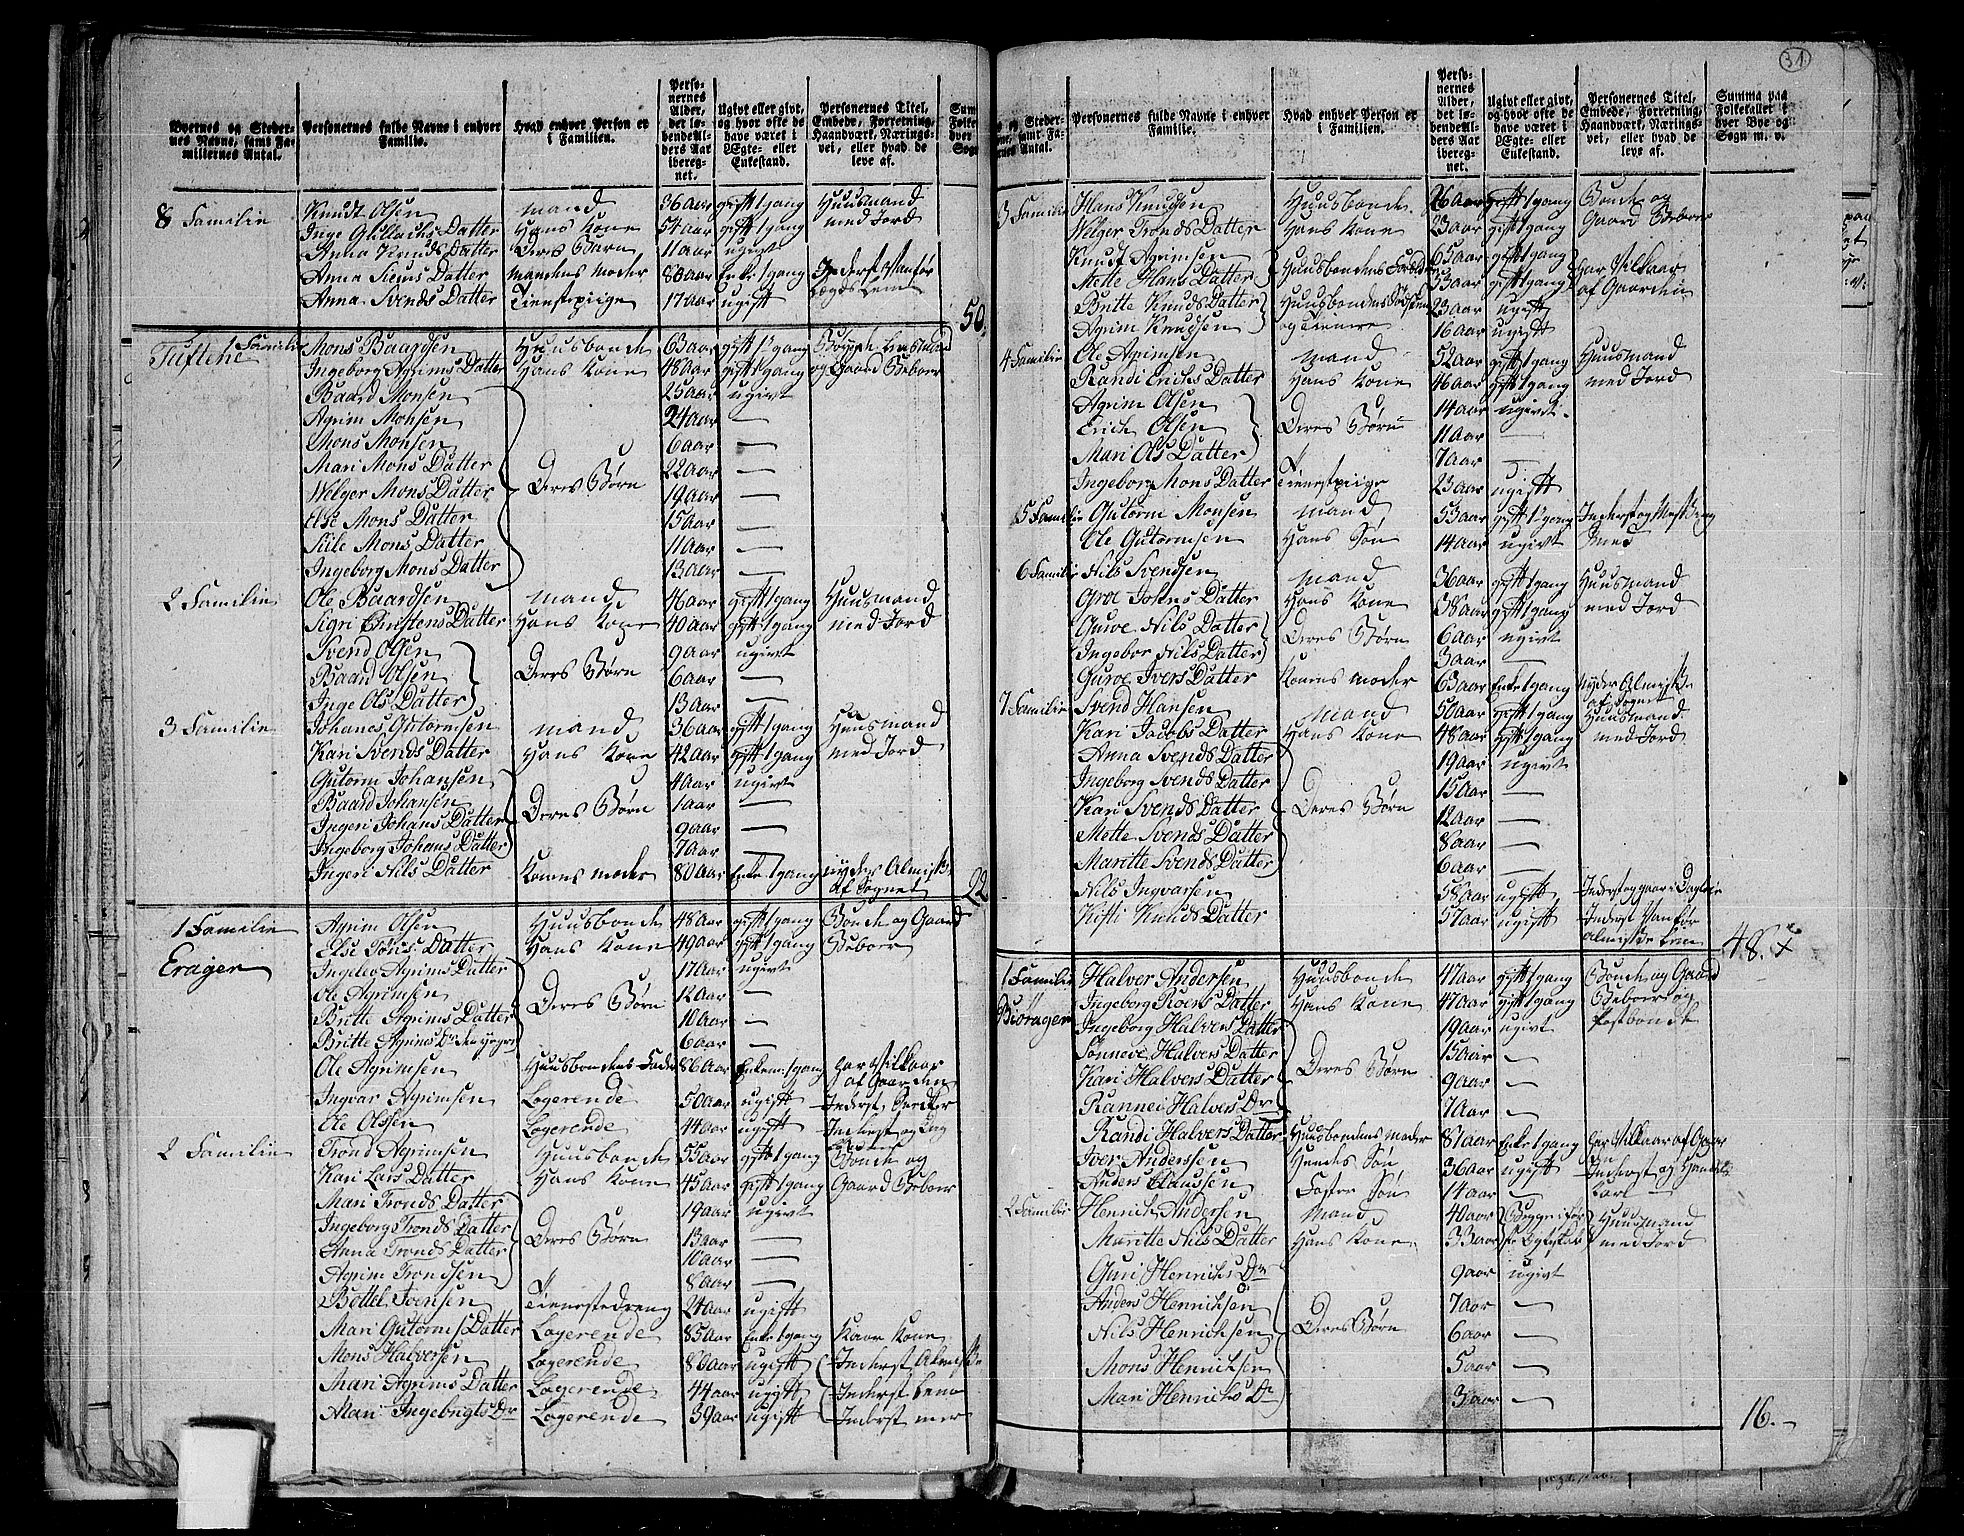 31
Byernes og Steder-
nes Navne, samt Fa-
miliernes Antal.
Personernes fulde Navne i enhver
Familie.
Hvad enhver Person er
i Familien.
Perso-
nernes
Alder,
det lø-
bende Al-
ders Aar
iberegn-
et.
Ugivt eller givt,
og hvor ofte de
have været i
Ægte- eller
Enkestand.
Personernes Titel,
Embede, Forretning,
Haandværk, Nærings-
vei, eller hvad de
leve af.
8 Familie Knudt Olsen mand 36 aar gift 1 gang Huusmand
Inge Gullachs Datter Hans Kone 54 aar gift 1 gang med Jord
Anna Knuds Datter Deres Barn 11 aar ugivt
Anna Siurs Datter mandens moder 80 aar Enke 1 gang Inderst Vanfør
Anna Svends Datter Tienestpiige 17 aar ugift Lægds Lem
50
Tuftene 1 Familie Mons Baardsen Huusbonde 63 aar gift 1 gang Lensmand
Ingeborg Agrims Datter Hans Kone 48 aar gift 1 gang og Gaard Beboer
Baard Monsen 25 aar ugivt
Agrim Monsen 24 aar —
Mons Monsen 6 aar —
Mari Mons Datter 22 aar —
Welger Mons Datter Deres Børn 19 aar —
Else Mons Datter 15 aar —
Siile Mons Datter 11 aar —
Ingeborg Mons Datter 13 aar —
2 Familie Ole Baardsen mand 46 aar gift 1 gang Huusmand
Sigri Christens Datter Hans Kone 40 aar gift 1 gang med Jord
Svend Olsen 9 aar ugivt
Baard Olsen Deres Børn 6 aar —
Inge Ols Datter 13 aar —
3 Familie Johanes Gutormsen mand 36 aar gift 1 gang Huusmand
Kari Svends Datter Hans Kone 42 aar gift 1 gang med Jord
Gutorm Johansen 4 aar ugivt
Baard Johansen Deres Børn 1 aar —
Ingeri Johans Datter 9 aar —
Ingeborg Johans Datter 7 aar —
Ingeri Nils Datter Konens moder 80 aar Enke 1 gang nyder Almisse
af Sognet
22
1 Familie Agrim Olsen Huusbonde 48 aar gift 1 gang Bonde og Gaard
Else Jøns Datter Hans Kone 49 aar gift 1 gang Beboer
Erager Ingelev Agrims Datter 17 aar ugivt
Ole Agrimsen Deres Børn 12 aar —
Britte Agrims Datter 10 aar —
Britte Agrims Dr den yngre 6 aar —
Ole Agrimsen Huusbondens Fader 86 aar Enkem. 1 gang har Vilkaar
af Gaarden
Ingvar Agrimsen Logerende 50 aar ugift Inderst,
Ole Olssen Logerende 44 aar ugift Inderst og Dag
2 Familie Trond Agrimsen Huusbonde 55 aar gift 1 gang Bonde og
Kari Lars Datter Hans Kone 45 aar gift 1 gang Gaard Beboer
Mari Tronds Datter 19 aar ugivt
Ingeborg Tronds Datter Deres Børn 13 aar —
Anna Tronds Datter 10 aar —
Agrim Trondsen 8 aar —
Bottel Ivensen Tienestedreng 24 aar ugift
Mari Gutorms Datter Logerende 85 aar Enke 1 gang Kaar Kone
Mons Halversen Logerende 80 aar ugift Inderst Almisse
Mari Agrims Datter Logerende 44 aar ugift Inderst Lem
Mari Ingebrigts Dr Logerende 39 aar ugift Inderst mer
Personernes fulde Navne i enhver
Familie.
Hvad enhver Person er
i Familien.
Perso-
nernes
Alder,
det lø-
bende Al-
ders Aar
iberegn-
et.
Ugivt eller givt,
og hvor ofte de
have været i
Ægte- eller
Enkestand.
Personernes Titel,
Embede, Forretning,
Haandværk, Nærings-
vei, eller hvad de
leve af.
Summa paa
Folketallet i
hver Bye og
Sogn m. v.
3 Familie Hans Knudsen Huusbonde 26 aar gift 1 gang Bonde og
Welger Tronds Datter Hans Kone 23 aar gift 1 gang Gaard Beboer
Knudt Agrimsen 65 aar gift 1 gang
Mette Hans Datter Huusbondens Forældre 53 aar gift 1 gang har Vilkaar
Britte Knuds Datter Huusbondens Søskende 23 aar ugift af Gaarden
Agrim Knudsen og Tienere 16 aar ugift
4 Familie Ole Agrimsen mand 52 aar gift 1 gang Huusmand
Randi Erichs Datter Hans Kone 46 aar gift 1 gang med Jord
Agrim Olsen 14 aar ugivt
Erich Olsen Deres Børn 11 aar —
Mari Ols Datter 7 aar —
Ingeborg Mons Datter Tienestpiige 23 aar ugift
5 Familie Gutorm Monsen mand 53 aar gift 1 gang Inderst og
Ole Gutormsen Hans Søn 14 aar ugivt
6 Familie Nils Svendsen mand 36 aar gift 1 gang Huusmand
Groe Johns Datter Hans Kone 38 aar gift 1 gang med Jord
Guroe Nils Datter Deres Børn 6 aar ugivt
Ingebor Nils Datter 3 aar —
Guroe Ivers Datter Konens moder 63 aar Enke 1 gang nyder Almisse
af Sognet
7 Familie Svend Hansen mand 50 aar gift 1 gang Huusmand
Kari Jacobs Datter Hans Kone 48 aar gift 1 gang med Jord
Anna Svends Datter 19 aar ugivt
Ingeborg Svends Datter 15 aar —
Kari Svends Datter Deres Børn 12 aar —
Mette Svends Datter 8 aar —
Maritte Svends Datter 6 aar —
Nils Ingvarsen 58 aar ugift Inderst og gaar i Dagleie
Kisti Knuds Datter 57 aar ugift Inderst Vanfør
Almisse Lem
48. x
1 Familie Halver Andersen Huusbonde 47 aar gift 1 gang Bonde og Gaard
Ingeborg Roens Datter Hans Kone 47 aar gift 1 gang Beboer og
Biørager Ingeborg Halvers Datter 19 aar ugivt Postbonde
Sønneve Halvers Datter 15 aar —
Kari Halvers Datter Deres Børn 9 aar —
Rannei Halvers Dr 7 aar —
Randi Halvers Datter Huusbondens moder 81 aar Enke 1 gang har Vilkaar af Gaar
den
Iver Anderssen Hendes Søn 36 aar ugift Inderst og
Anders Claussen Foster Søn 14 aar —
2 Familie Henrich Andersen mand 40 aar Begge i før- Huusmand
Maritte Nils Datter Hans Kone 33 aar ste Egteskab med Jord
Guri Henrichs Dr 9 aar ugivt
Anders Henrichsen 7 aar —
Nils Henrichsen Deres Børn 6 aar —
Mons Henrichsen 5 aar —
Mari Henrichs Dr 3 aar —
16.